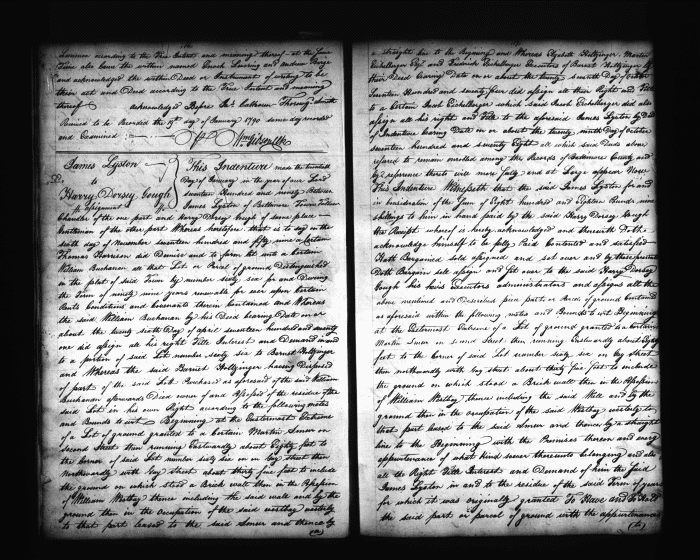 hereunto according to the True Intent and meaning thereof at the same
Time also Came the within named Enoch Levering and
and acknowledged the within Deed or Instrument of writing to be
their act and Deed according to the True Intent and meaning
thereof acknowledged Before Jas. Calhoun Thorowgd. Smith
Received to be Recorded the 9th day of January 1790 same day recorded
and Examined Wm. Gibson Clk
James Lyston
to
Harry Dorsey Gough
assignment
This Indenture made the twentieth
Day of January in the year of our Lord
seventeen Hundred and ninety Between
James Lyston of Baltimore Town
Chandler of the one part and Harry Dorsey Gough of same place
Gentleman of the other part Whereas heretofore that is to say on the
sixth day of November seventeen hundred and fifty nine a Certain
Thomas Harrison did Demise and to farm let unto a Certain
William Buchanan all that Lot or Parcel of ground Distinguished
in the plot of said Town by number sixty six for and During
the Term of ninety nine years renewable for ever upon Certain
Rents Conditions and Covenants therein Contained and Whereas
the said William Buchanan by his Deed bearing Date on or
about the twenty sixth Day of april seventeen hundred and seventy
one did assign all his right Title Interest and Demand in and
to a portion of said Lot number sixty six to Barnet Holtzinger
and Whereas the said Barnet Holtzinger having Disposed
of part of the said Lot Purchased as aforesaid of the said William
Buchanan afterwards Died owner of and Possessed of the residue of the
said Lot in his own Right according to the following metes
and Bounds to wit Beginning at the Easternmost Extreme
of a Lot of ground granted to a Certain Martin Smur on
second Street then running Eastwardly about Eighty feet to
the Corner of said Lot number sixty six on Gay street then
Northwardly with Gay street about thirty five feet to include
the ground on which stood a Brick wall then in the Possession
of William Westbay thence including the said wall and by the
ground then in the Occupation of the said Westbay westerly
to that part leased to the said Smur and thence by
a straight line to the Beginning and Whereas Elizabeth Holtzinger Martin
Eichelberger Esqr and Frederick Eichelberger Executors of Barnet Holtzinger by
their Deed bearing Date on or about the twenty seventh Day of October
Seventeen Hundred and seventy five did assign all their Right and Title
to a Certain Jacob Eichelberger which said Jacob Eichelberger did also
assign all his right and Title to the aforesaid James Lyston by Deed
of Indenture bearing Date on or about the twenty ninth Day of October
seventeen hundred and seventy Eight all which said Deeds above
refered to remain enrolled among the Records of Baltimore County and
by reference thereto will more fully and at Large appear Now
This Indenture Witnesseth that the said James Lyston for and
in Consideration of the sum of Eight Hundred and Eighteen Pounds nine
shillings to him in hand paid by the said Harry Dorsey Gough
the Receipt whereof is hereby acknowledged and therewith Doth
acknowledge himself to be fully Paid Contented and satisfied
Hath Bargained sold assigned and set over and by these presents
Doth Bargain sell assign and set over to the said Harry Dorsey
Gough his Heirs Executors administrators and assigns all the
above mentioned and Described piece part or Parcel of ground Contained
as aforesaid within the following metes and Bounds to wit Beginning
at the Easternmost Extreme of a Lot of ground granted to a Certain
Martin Smur on second Street then running Eastwardly about Eighty
feet to the Corner of said Lot number sixty six on Gay street
then northwardly with Gay street about thirty five feet to include
the ground on which stood a Brick wall then in the Possession
of William Westbay thence including the said Wall and by the
ground then in the occupation of the said Westbay westerly to
that part leased to the said Smur and thence by a straight
line to the Beginning with the Premises thereon and every
appurtenance of what kind soever thereunto belonging and also
all the Right Title Interest and Demand of him the said
James Lyston in and to the residue of the said Term of years
for which it was originally granted To Have and To Hold
the said part or parcel of ground with the appurtenances